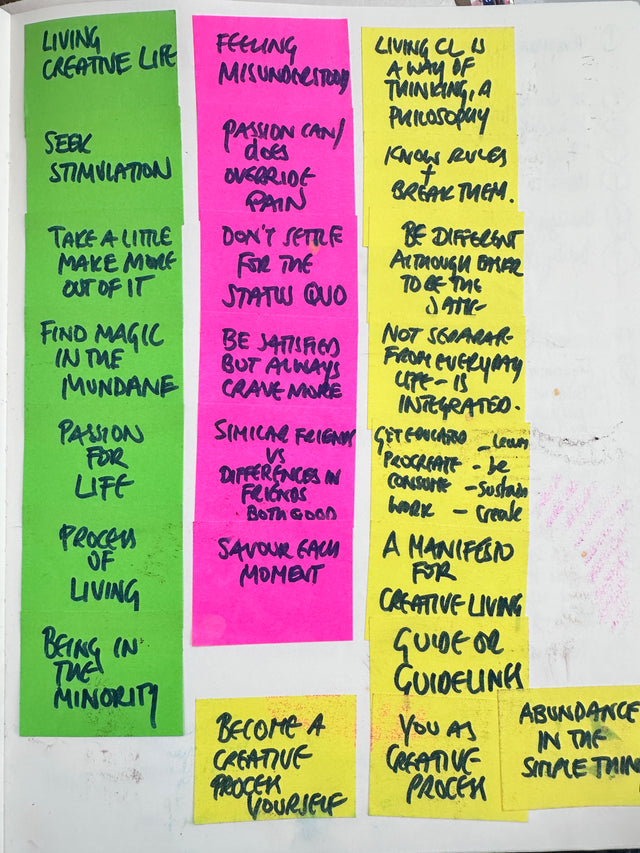 LIVING
CREATIVE LIFE
SEEK
STIMULATION
TAKE A LITTLE
MAKE MORE
OUT OF IT
FIND MAGIC
IN THE
MUNDANE
PASSION
FOR
LIFE
PROCESS
OF
LIVING
BEING IN
THE
MINORITY
FEELING
MISUNDERSTOOD
PASSION CAN/
does
OVERRIDE
PAIN
DON'T SETTLE
FOR THE
STATUS QUO
BE SATISFIED
BUT ALWAYS
CRAVE MORE
SIMILAR FRIENDS
VS
DIFFERENCES IN
FRIENDS
BOTH GOOD
SAVOUR EACH
MOMENT
LIVING CL IS
A WAY OF
THINKING, A
PHILOSOPHY
KNOW RULES
+
BREAK THEM.
BE DIFFERENT
ALTHOUGH EASIER
TO BE THE
SAME
NOT SEPARATE
FROM EVERYDAY
LIFE - IS
INTEGRATED.
GET EDUCATED - Learn
PROCREATE - be
CONSUME - Sustain
WORK - Create
A MANIFESTO
FOR
CREATIVE LIVING
GUIDE OR
GUIDELINES
BECOME A
CREATIVE
PROCESS
YOURSELF
YOU AS
CREATIVE
PROCESS
ABUNDANCE
IN THE
SIMPLE THIN